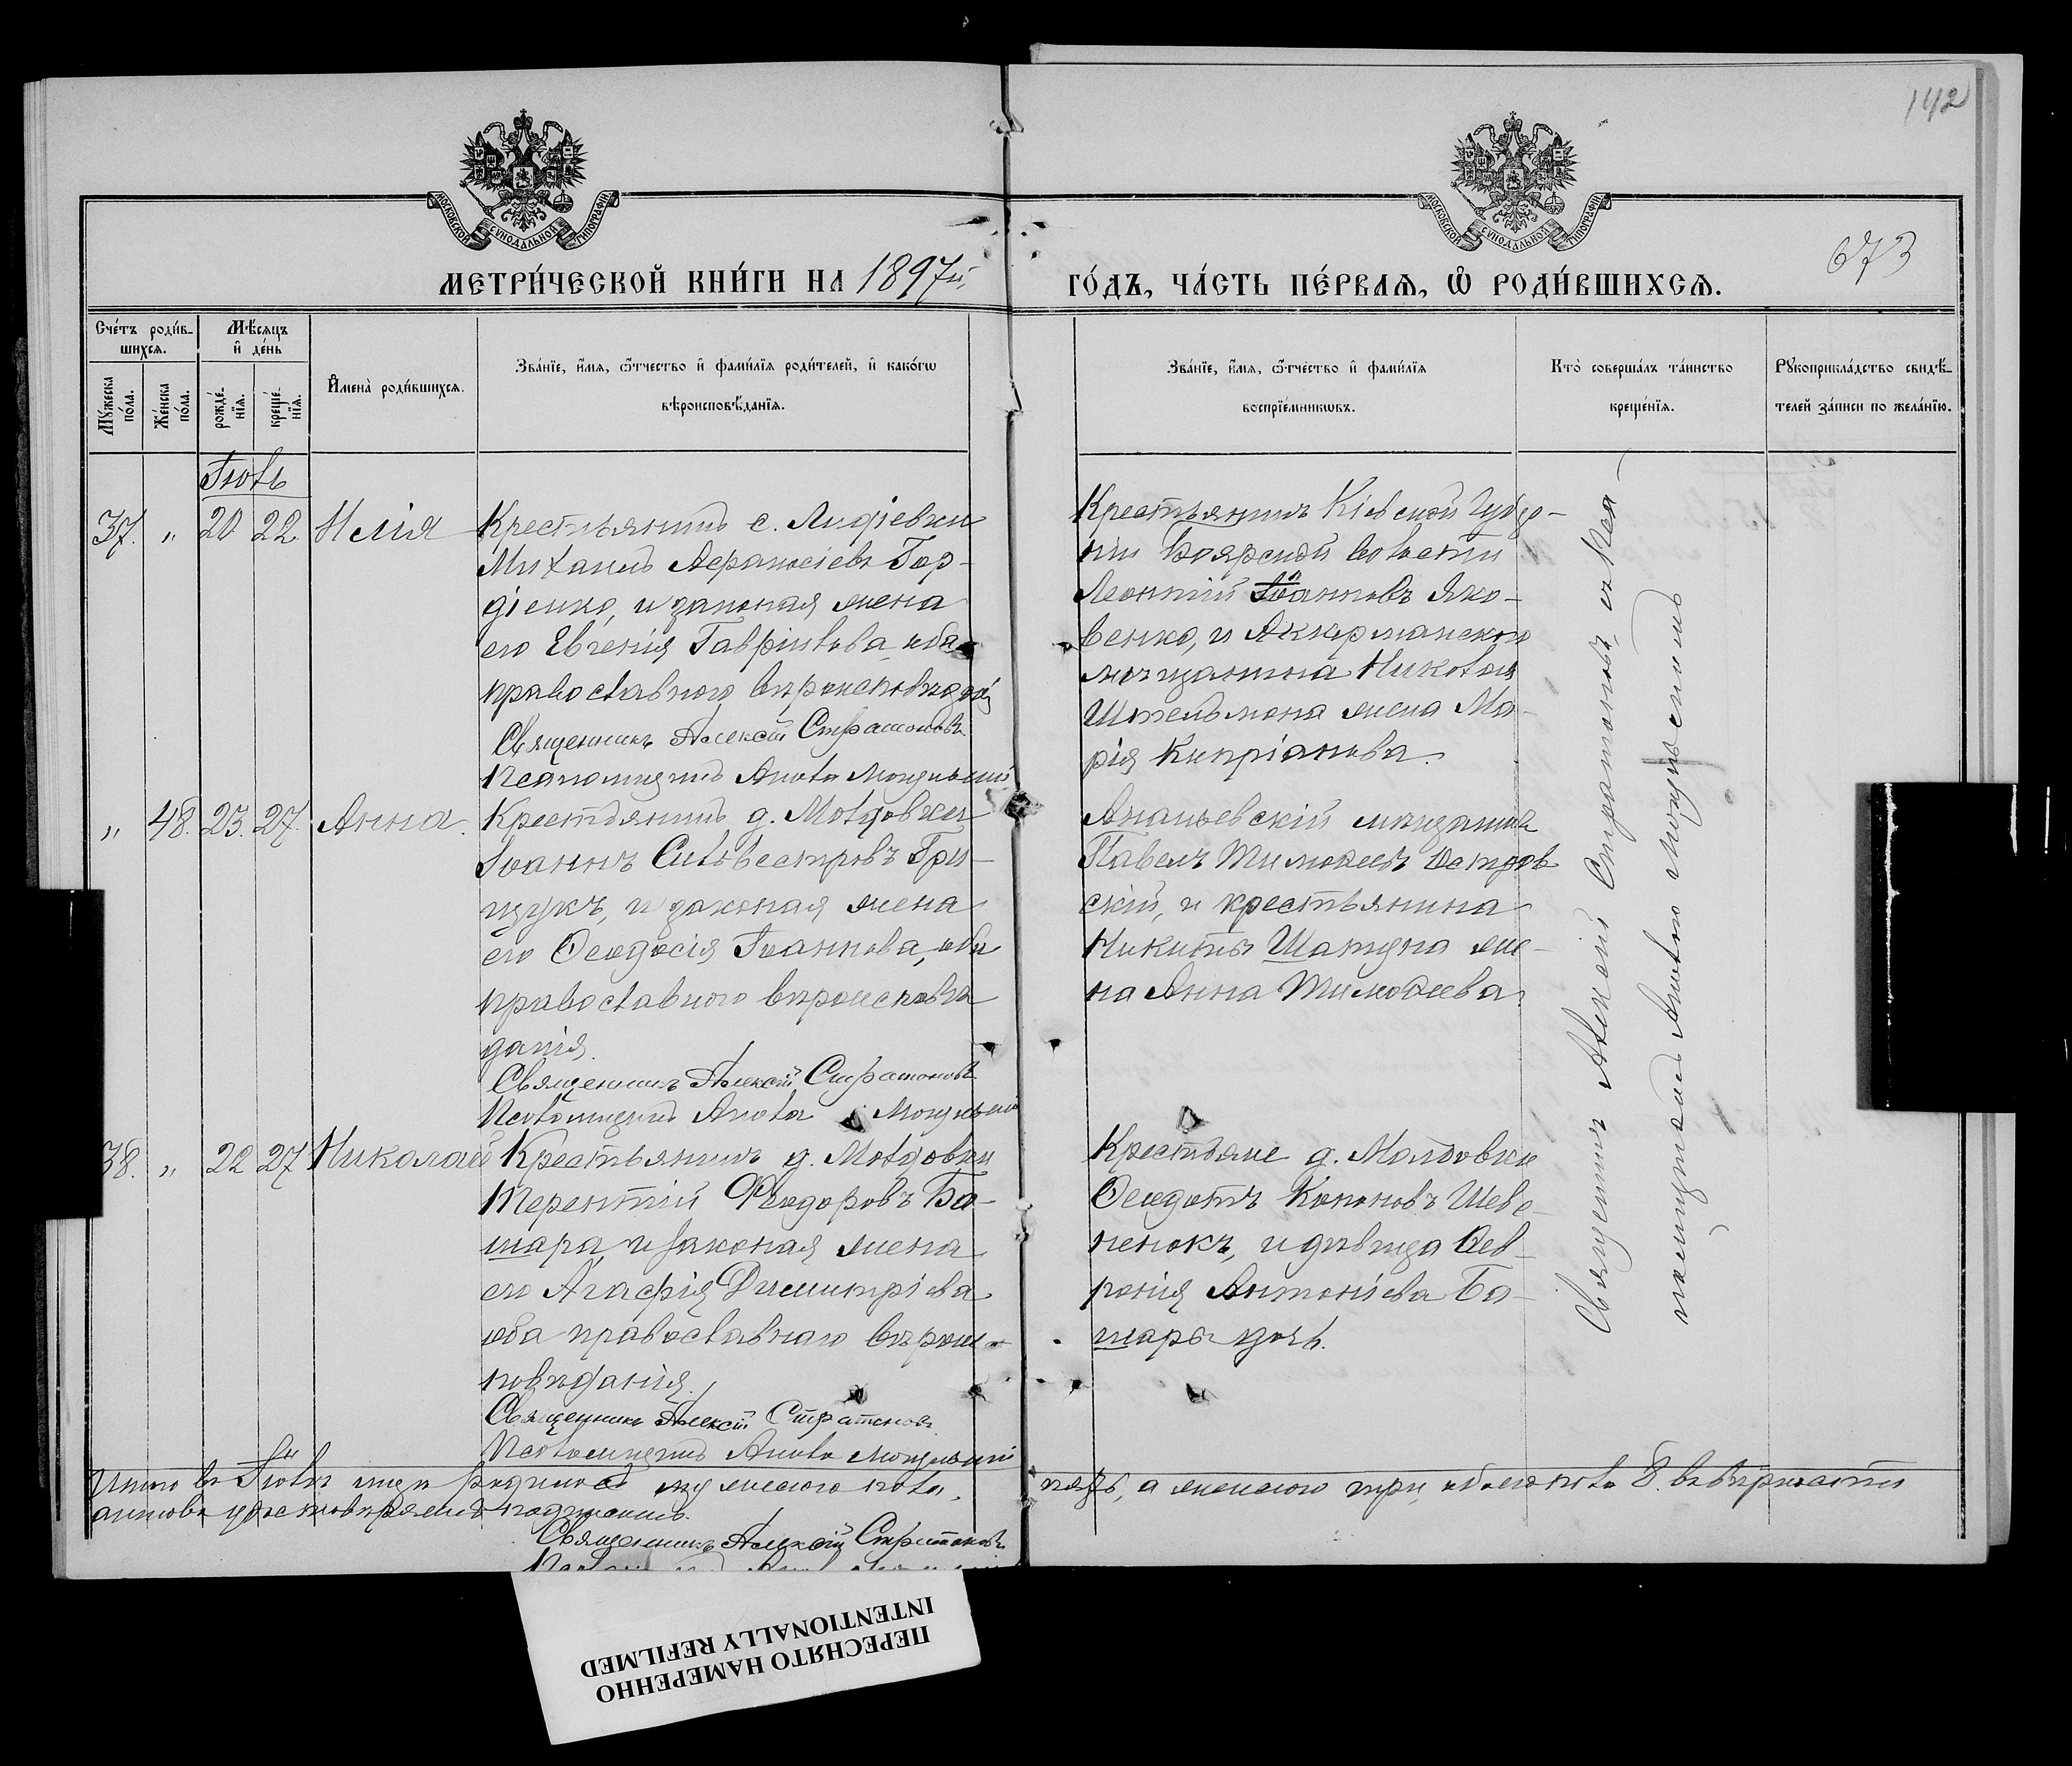 142
МОСКОВСКОЙ СУНОДАЛЬНОЙ ТИПОГРАФІИ
МОСКОВСКОЙ СУНОДАЛЬНОЙ ТИПОГРАФІИ
673
МЕТРИ́ЧЕСКОЙ КНИ́ГИ НА 1897й
ГО́ДЪ, ЧА́СТЬ ПЕ́РВАѦ, Ѡ РОДИ́ВШИХСѦ.
Сче́тъ роди́в-
шихсѧ.
Мѣ́сѧцъ
и҆ де́нь
Мꙋ́жеска
по́ла.
Же́нска
по́ла.
рожде́-
нїѧ.
креще́-
нїѧ.
И҆мена̀ роди́вшихсѧ.
Зва́нїе, и҆́мѧ, ѻ҆́тчество и҆ фами́лїѧ роди́телей, и҆ како́гѡ
вѣроисповѣ́данїѧ.
Зва́нїе, и҆́мѧ, ѻ҆́тчество и҆ фами́лїѧ
воспрїе́мникѡвъ.
Кто̀ соверша́лъ та́инство
креще́нїѧ.
Рꙋкоприкла́дство свидѣ́-
телей за́писи по жела́нїю.
Іюль
37. " 20 22 Илія
Крестьянинъ с. Лидіевки
Михаилъ Аѳанасіевъ Гор-
діенко, и законая жена
его Евгенія Гавріилова, оба
православнаго вѣроисповѣданія
Священникъ Алексій Стратоновъ
Псаломщикъ Могильскій
Крестьянинъ Кіевской Губер-
ніи Боярской волости
Леонтій Іоанновъ Яко-
венко, и Аккерманскаго
мѣщанина Николая
Штельмаха жена Ма-
рія Кипріанова.
" 48. 23. 27. Анна.
Крестьянинъ д. Молдовки
Іоаннъ Сильвестровъ Гри-
щукъ, и законая жена
его Ѳеодосія Іоаннова, оба
православного вѣроисповѣ
данія.
Священникъ Алексій Стратоновъ
Псаломщикъ Могильскій
Ананьевскій мѣщанинъ
Павелъ Тимоѳеевъ Островс
скій, и крестьянина
Никиты Шатуна же-
на Анна Тимоѳеева.
38. " 22 27 Николай
Крестьянинъ д. Молдовки
Терентій Ѳеодоровъ Ба-
шара, и законая жена
его Агафія Димитріева
оба православнаго вѣроис-
повѣданія.
Священникъ Алексій Стратоновъ
Псаломщикъ Могильскій
Крестьяне д. Молдовки
Ѳеодотъ Кононовъ Шевe-
ненокъ, и дѣвица Фев-
ронія Антоніева Ба-
шары дочь.
Священникъ Алексій Стратоновъ, съ Пса-
ломщикомъ Могильскимъ
Итого въ Іюлѣ м-цѣ родилось мужескаго пола
пять, а женскаго три, обоего пола 8. въ вѣрности
удостовѣряемъ подписями.
Священникъ Алексій Стратоновъ
ПЕРЕСНЯТО НАМЕРЕННО
INTENTIONALLY REFILMED